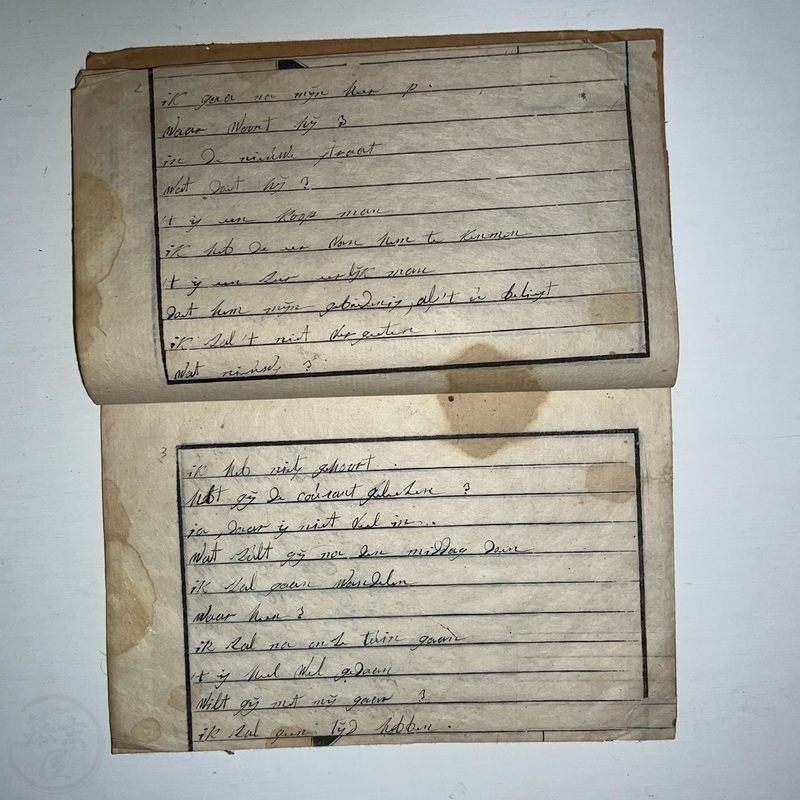 2
ik gaa na mijn heer p.
Waar Woont hij ?
in de nieuwe straat
Wat doet hij ?
't is een koop man
ik heb de eer van hem te kennen
't is een seer eerlijk man
doet hem mijn gebiedenis, als't u belieft
ik sal 't niet vergeeten.
Wat nieuws ?
3
ik heb niets gehoort.
hebt gij de courant geleesen ?
ia, daar is niet veel in.
Wat sult gij na den middag doen
ik sal gaan Wandelen
Waar heen ?
ik sal na onse tuin gaan
't is heel Wel gedaan
Wilt gij met mij gaan ?
ik sal geen tijd hebben.